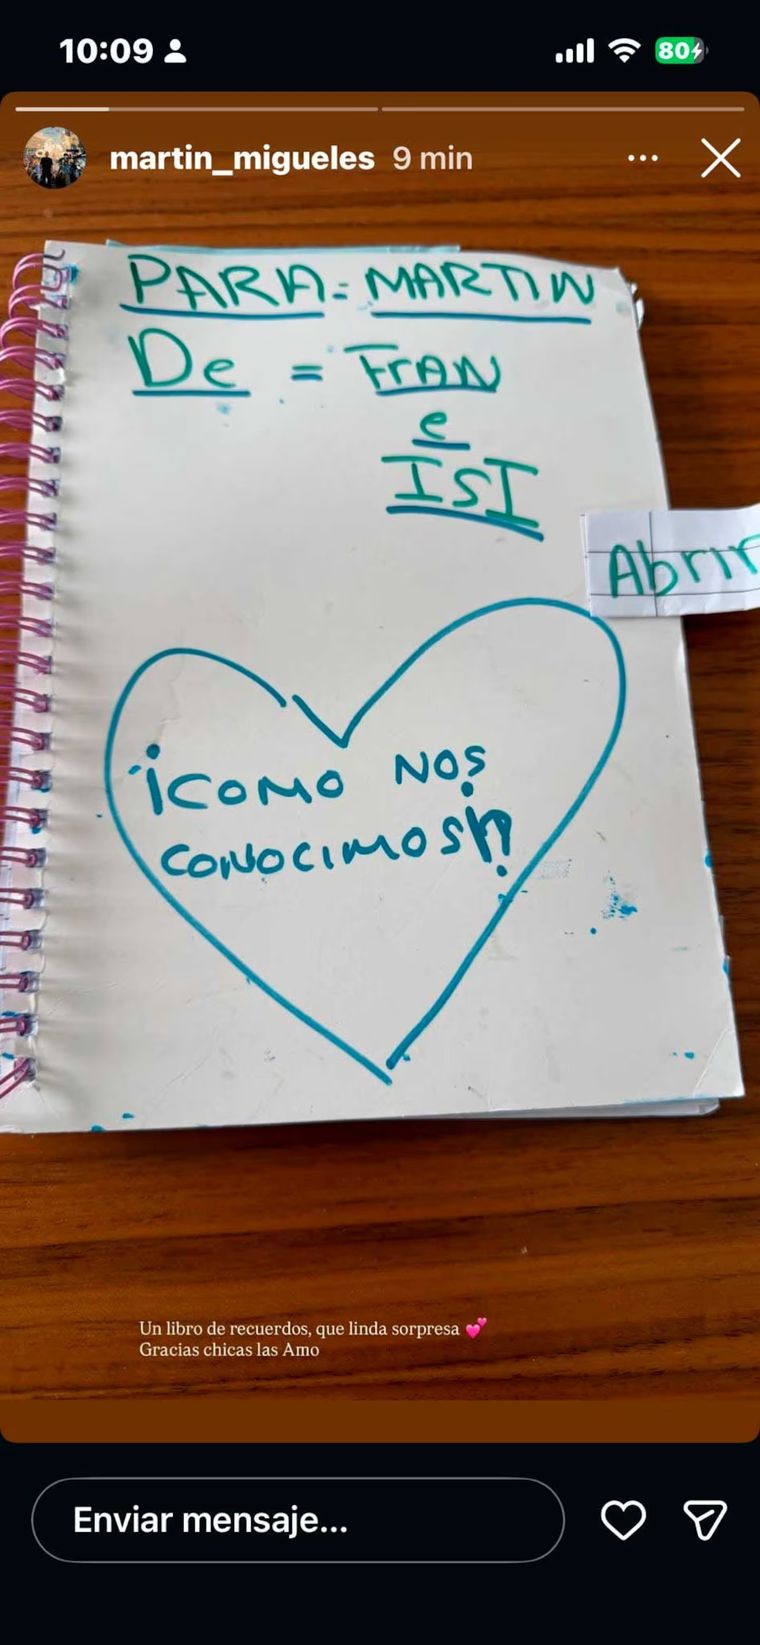 10:09
80
martin_migueles 9 min
PARA = MARTIN
De = FrAN
e
ISI
Abrir
¡COMO NOS
CONOCIMOS!?
Un libro de recuerdos, que linda sorpresa 💕
Gracias chicas las Amo
Enviar mensaje...